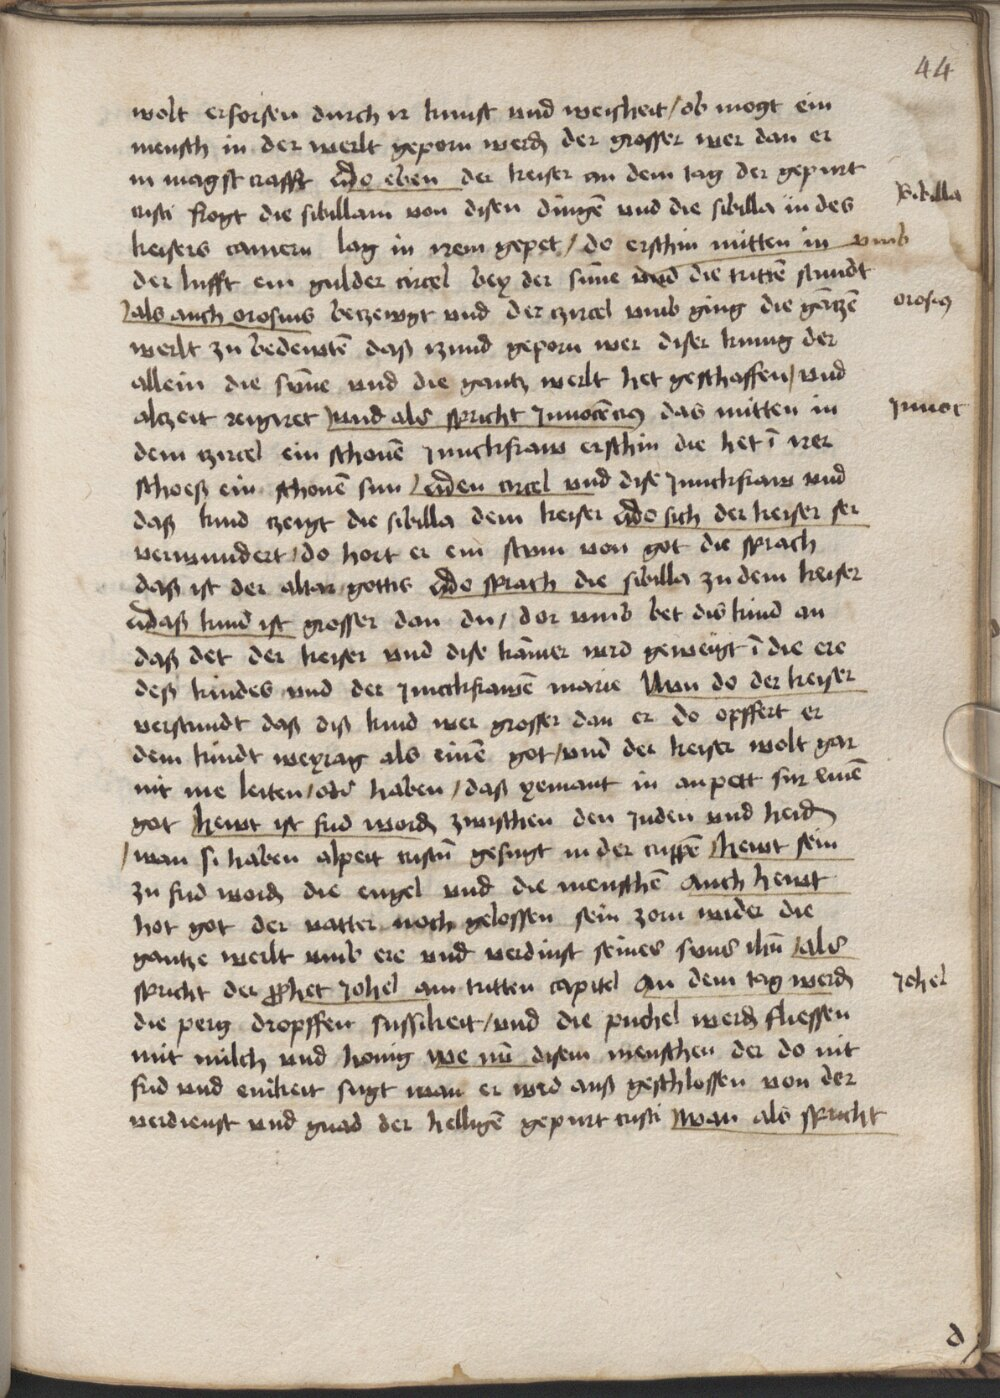 44
wolt erforsen durch ir kunst vnd weisheit / ob mogt ein
mensch in der werlt geporn werdē der grosser wer dan er
in magst crafft do eben der keiser an dem tag der gepurt
cristi fragt die sibillam von disen dingē vnd die sibilla in des
Sibilla
keisers camern lag in irem gepet / do erschin mitten in vmb
der lufft ein gulder circel bey der sūne vnd die trittē stundt
als auch orosius betzewgt vnd der tzircel vmb ging die gātzē
orosiꝰ
werlt zu bedewtē daß itzund geporn wer diser kunig der
allein die sūne vnd die gantz werlt het geschaffen / vnd
altzeit regiret / vnd als spricht Jnnocēciꝰ das mitten in
Jnnoc
dem tzircel ein schonē Junckfraw erschin die het ī irer
schoeß ein schonē sun / den circel vnd dise Junckfraw vnd
daß kind tzeigt die sibilla dem keiser do sich der keiser ser
verwundert / do hort er ein stym von got die sprach
daß ist der altar gottis do sprach die sibilla zu dem keiser
daß kind ist grosser dan du / dor vmb bet dis kind an
daß det der keiser vnd dise kāmer wrd geweigt ī die ere
deß kindes vnd der Junckfrawē marie Nvn do der keiser
verstundt daß diß kind wer grosser dan er do opffert er
dem kindt weyrag als einē got / vnd der keiser wolt gar
nit me leiten / oder haben / daß yemant in anpett fur einē
got hewt ist frid wordē zwischen den Juden vnd heidē
/ wan si haben alpeit cristū gesugt in der crippē hewt sein
zu frid wordē die engel vnd die menschē auch hewt
hot got der vatter noch gelossen sein zorn wider die
gantze werlt vmb ere vnd verdinst seines suns ihū / als
spricht der pphet Johel am tritten capitel An dem tag werdē
Johel
die perg dropffen sussikeit / vnd die puchel werdē fliessen
mit milch vnd honig we nū disem menschen der do nit
frid vnd enikeit sugt wan er wrd auß geschlossen von der
verdienst vnd gnad der helligē gepurt cristi wan als spricht